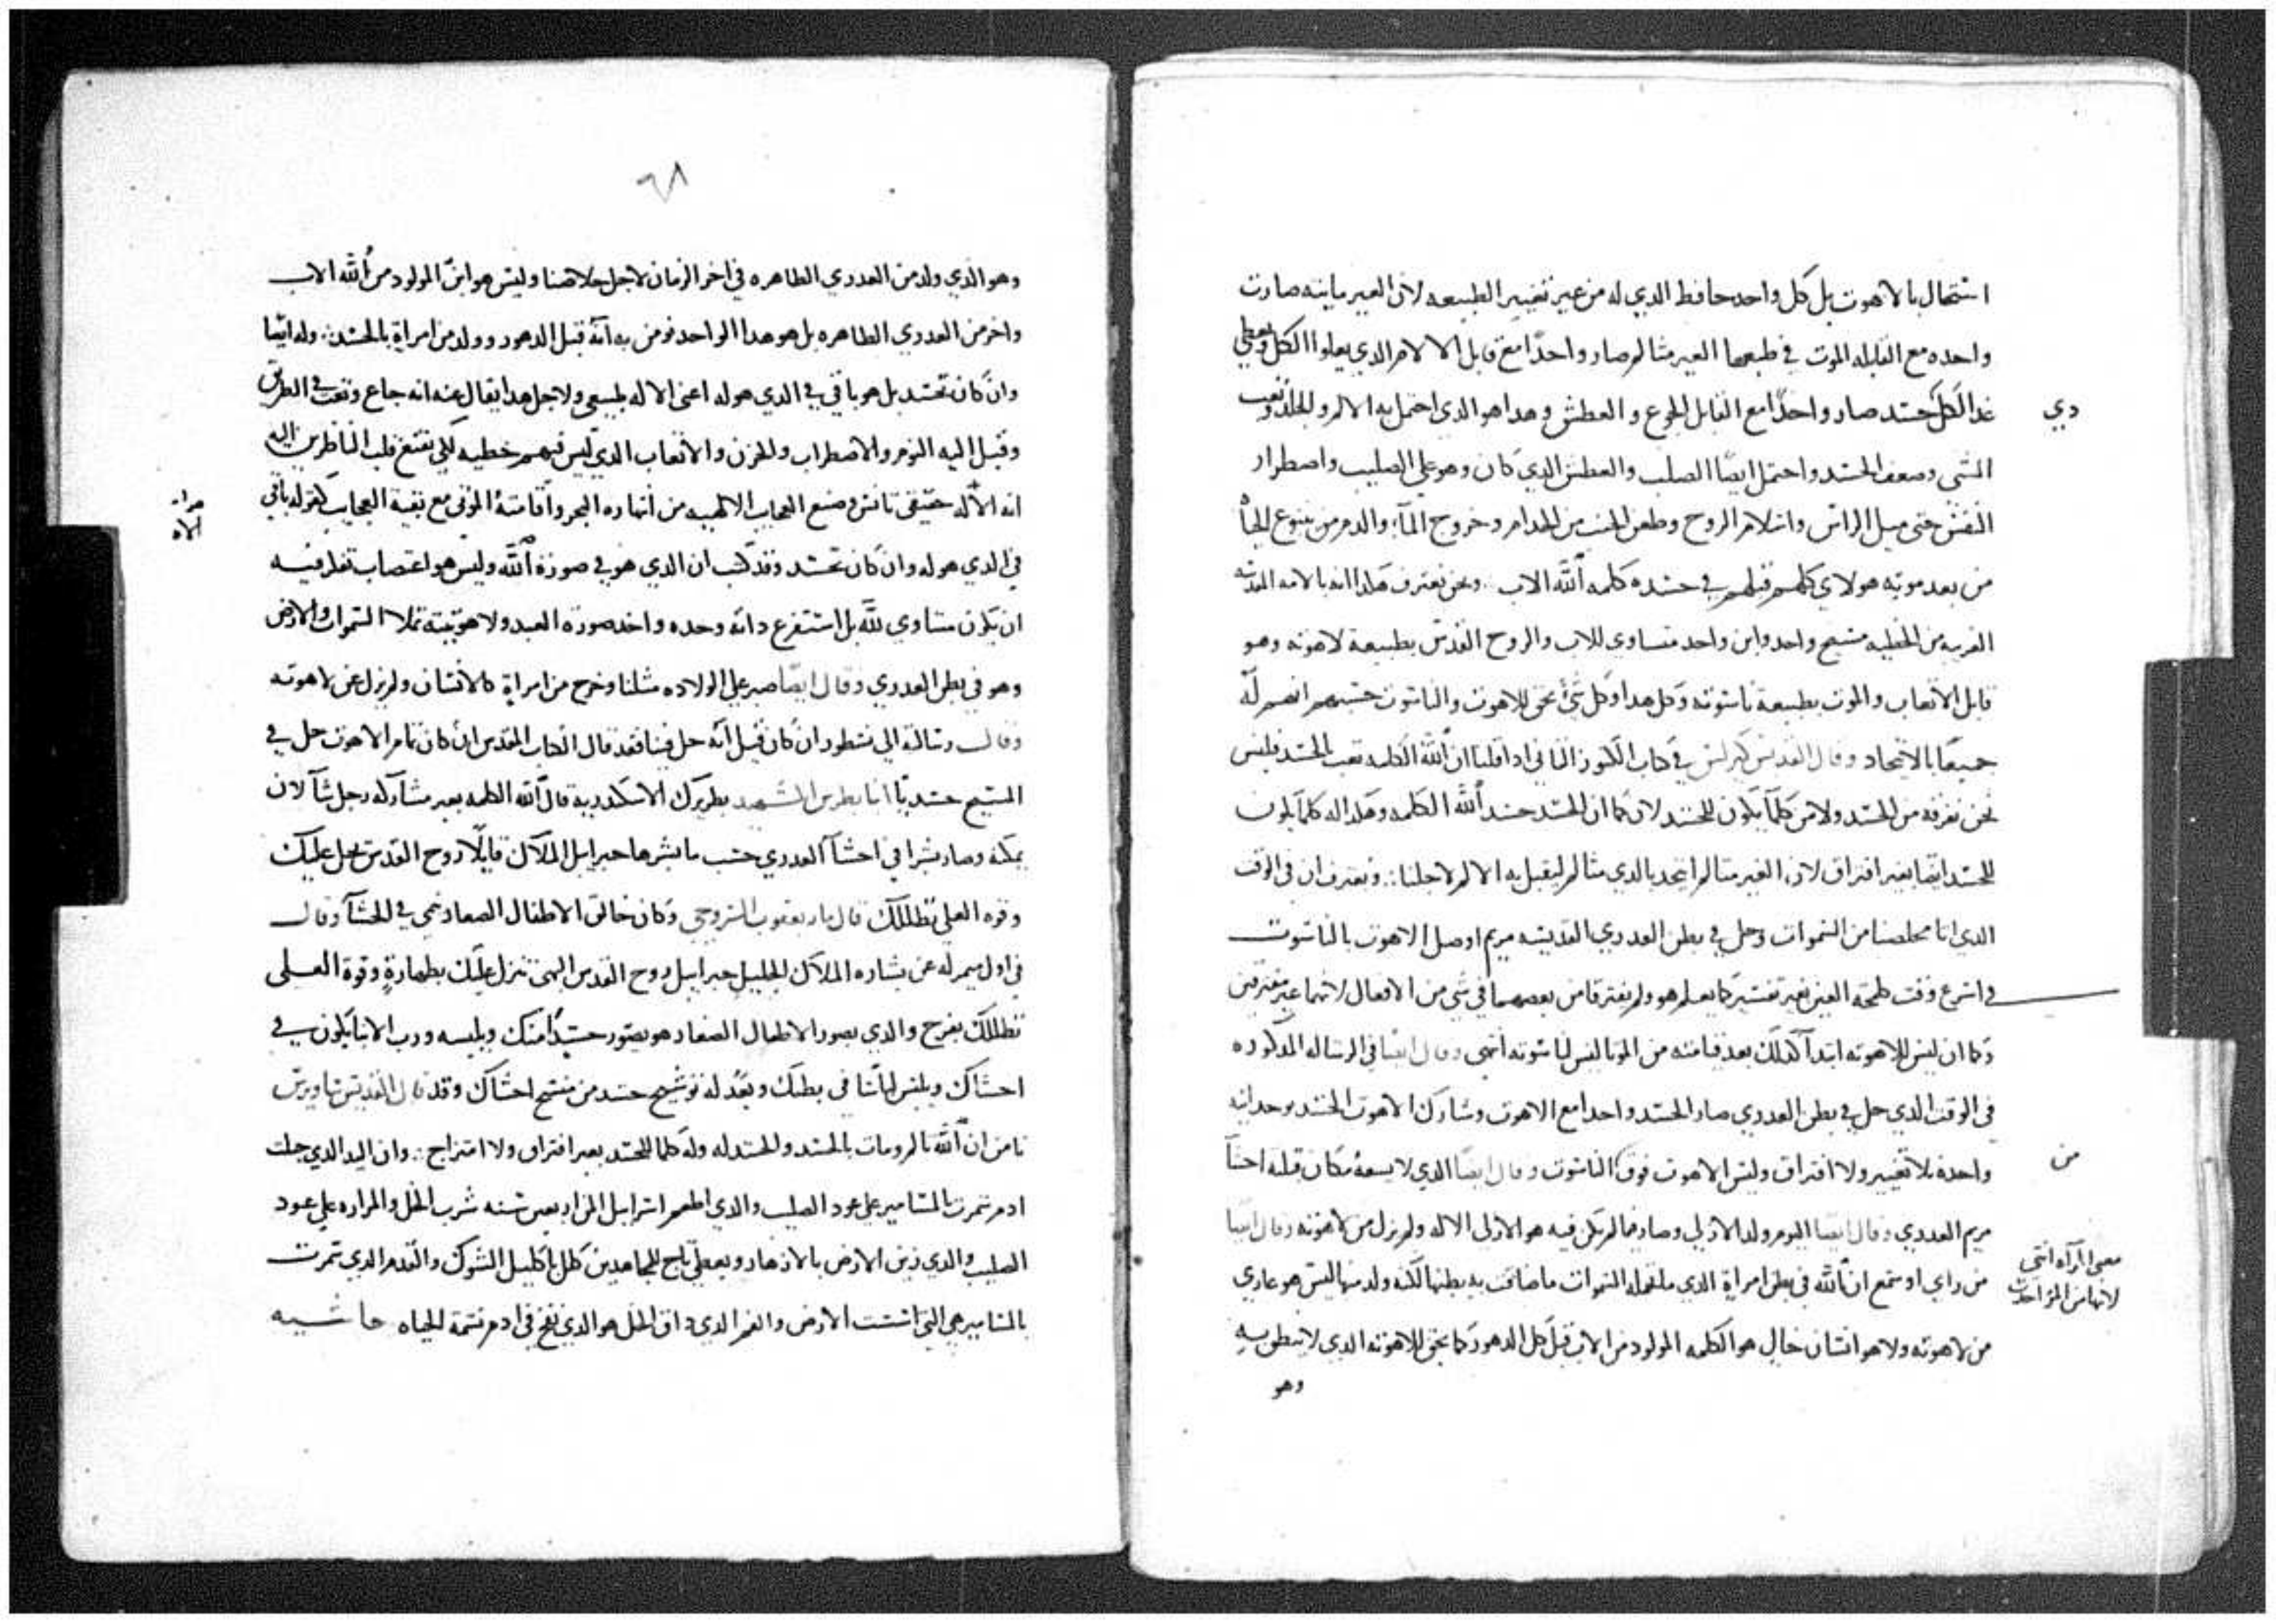 استحال بالاهوت بل كل واحد حافظ الدي له من غير تغيير الطبيعه لان الغير مايته صارت
واحده مع القابله الموت في طبعها الغير متالم صار واحدًا مع قابل الالام الدي يعلوا الكل ويعطي
غدا لكل جسد صار واحدًا مع القابل للجوع والعطش وهدا هو الدي احتمل به الالم والجلد وتعب
دي
المشي وضعف الجسد واحتمل ايضًا الصلب والعطش الدي كان وهو علي الصليب واضطرار
النفس حتى ميل الراس واسلام الروح وطعن الجنب من الخدام وخروج المآء والدم من ينبوع الحياه
من بعد موته هولاي كلهم قبلهم في جسده كلمه الله الاب ونحن نعترف هكدا انه بالامه المقدسه
القريه من الخطيه مسيح واحد وابن واحد متساوي للاب والروح القدس بطبيعة لاهوته وهو
قابل الاتعاب والموت بطبيعة ناسوته وكل هدا وكل شئ يحق للاهوت والناسوت حسبهم انهم له
جميعًا بالاتحاد وقال القديس كيرلس في كتاب الكنوز التاني ادا قلنا ان الله الكلمه تعب بالجسد فليس
نحن نفرقه من الجسد ولا من كلما يكون للجسد لان كما ان الجسد جسد الله الكلمه وهكدا له كلما يكون
للجسد ايضا بغير افتراق لان الغير متالم اتحد بالدي متالم ليقبل به الالم لاجلنا ∴ ونعترف ان في الوقت
الدي اتا مخلصنا من السموات وحل في بطن العدري القديسه مريم اوصل الاهوت بالناسوت
في اسرع وقت طلمحة العين بغير تفسير كما يعلم هو ولم يفترقا من بعضهما في شي من الافعال لانهما غير مفترقين
وكما ان ليس للاهوته ابتدآ كدلك بعد قيامته من الموتا ليس لناسوته انتهى وقال ايضا في الرساله المدكوره
في الوقت الدي حل في بطن العدري صار الجسد واحدا مع الاهوت وشارك الاهوت الجسد بوحدانيه
واحدة بلا تغيير ولا افتراق وليس الاهوت فوق الناسوت وقال ايضًا الدي لا يسعه مكان قبله احشآ
من
مريم العدري وقال ايضا اليوم ولد الازلي وصار فيما لم يكن فيه هو الازلى الاله ولم يزل من لاهوته وقال ايضا
من راي او سمع ان الله في بطن امراة الدي ملتحمله السموات ما ضاقت به بطنها لكنه ولد منها ليس هو عاري
معنى امرآه انتى
لانها من المرء اخدت
من لاهوته ولا هو انسان خالي هو الكلمه المولود من الاب قبل كل الدهور كما يحق للاهوته الدي لا ينطق به
وهو
٦٨
وهو الدي ولد من العدري الطاهره في اخر الزمان لاجل خلاصنا وليس هو ابن المولود من الله الاب
واخر من العدري الطاهره بل هو هدا الواحد نومن به انه قبل الدهور وولد من امراة بالجسد ∴ وله ايضا
وان كان تجسد بل هو باقي في الدي هو له اعنى الاله طبيعي ولاجل هدا يقال عنه انه جاع وتعب في الطريق
وقبل اليه النوم والاضطراب والحزن والاتعاب الدي ليس فيهم خطيه لكي يقنع قلب الناظرين اليه
انه الاله حقيقي تانس وصنع العجايب الالهيه من انتهاره البحر واقامته الموتى مع بقية العجايب كقوله باقي
الاه
في الدي هو له وان كان تجسد وقد كتب ان الدي هو في صورة الله وليس هو اغتصاب تفكر فيه
ان يكون متساوي لله بل استفرغ داته وحده واخد صورة العبد ولاهوتيته تملا السموات والارض
وهو في بطن العدري وقال ايضًا صبر علي الولاده مثلنا وخرج من امراة كالانسان ولم يزل عن لاهوته
وقال رسالة الي نسطور ان كان قيل انه حل فينا فقد قال الكتاب المقدس ان كان تمام الاهوت حل في
المسيح جسديًا انبا بطرس الشهيد بطريرك الاسكندرية قال الله الكلمه بغير مشاركه رجل شآ لان
يمكنه وصار بشرا في احشآ العدري حسب ما بشرها جبرايل الملاك قايلًا روح القدس يحل عليك
وقوه العلي تظللك قال مار يعقوب السروجي وكان خالق الاطفال الصغار نمي في الحشآ وقال
في اول ميمر له عن بشاره الملاك الجليل جبراييل روح القدس البهى تنزل عليك بطهارةٍ وقوة العلي
تظللك بفرح والدي يصور الاطفال الصغار هو يصور جسدًا منك ويلبسه ورب الابنا يكون في
احشاك ويلبس لباسًا في بطنك ويعد له توشيح جسد من منسج احشاك وقد قال القديس ساويرس
نامن ان الله تالم ومات بالجسد والجسد له وله كلما للجسد بغير افتراق ولا امتزاج ∴ وان اليد الدي جبلت
ادم سمرت بالمسامير على عود الصليب والدي اطعم اسراييل المن اربعين سنه شرب الخل والمراره علي عود
الصليب والدي زين الارض بالازهار ويعطي تاج للمجاهدين كلل باكليل الشوك والقدم الدي سمرت
بالمسامير هي التي اسست الارض والفم الدي داق الخل هو الدي نفخ في ادم نسمة الحياه حاشيه